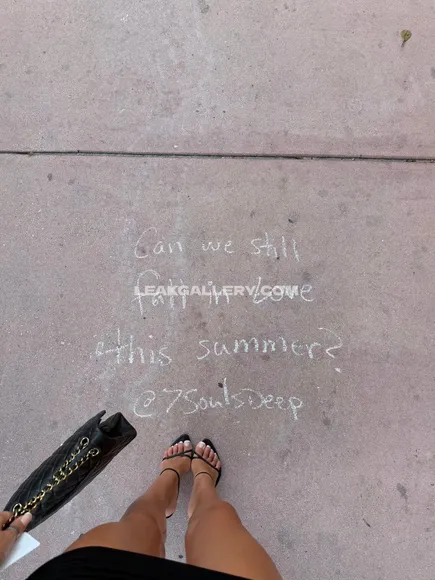 Can we still
fall in love
LEAKGALLERY.COM
this summer?
@7SoulsDeep